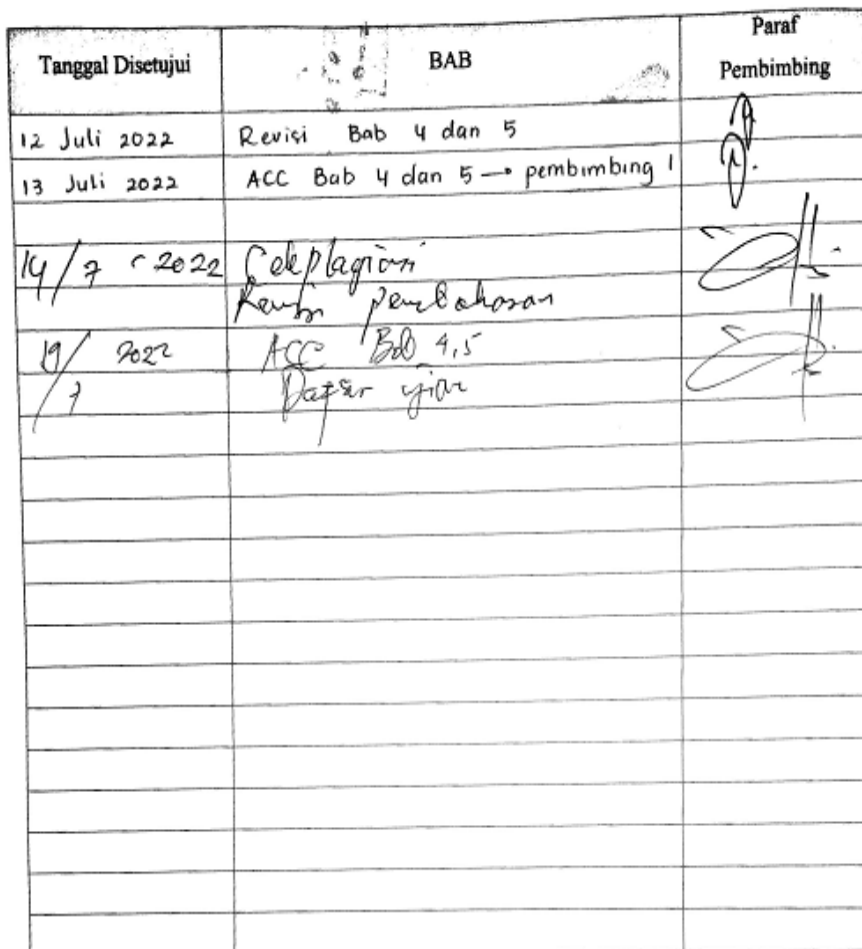 Tanggal Disetujui BAB Paraf Pembimbing
12 Juli 2022 Revisi Bab 4 dan 5
13 Juli 2022 ACC Bab 4 dan 5 → pembimbing 1
14/7 - 2022 Cek plagiasi
Revisi pembahasan
19/7 2022 ACC Bab 4,5
Daftar ujian